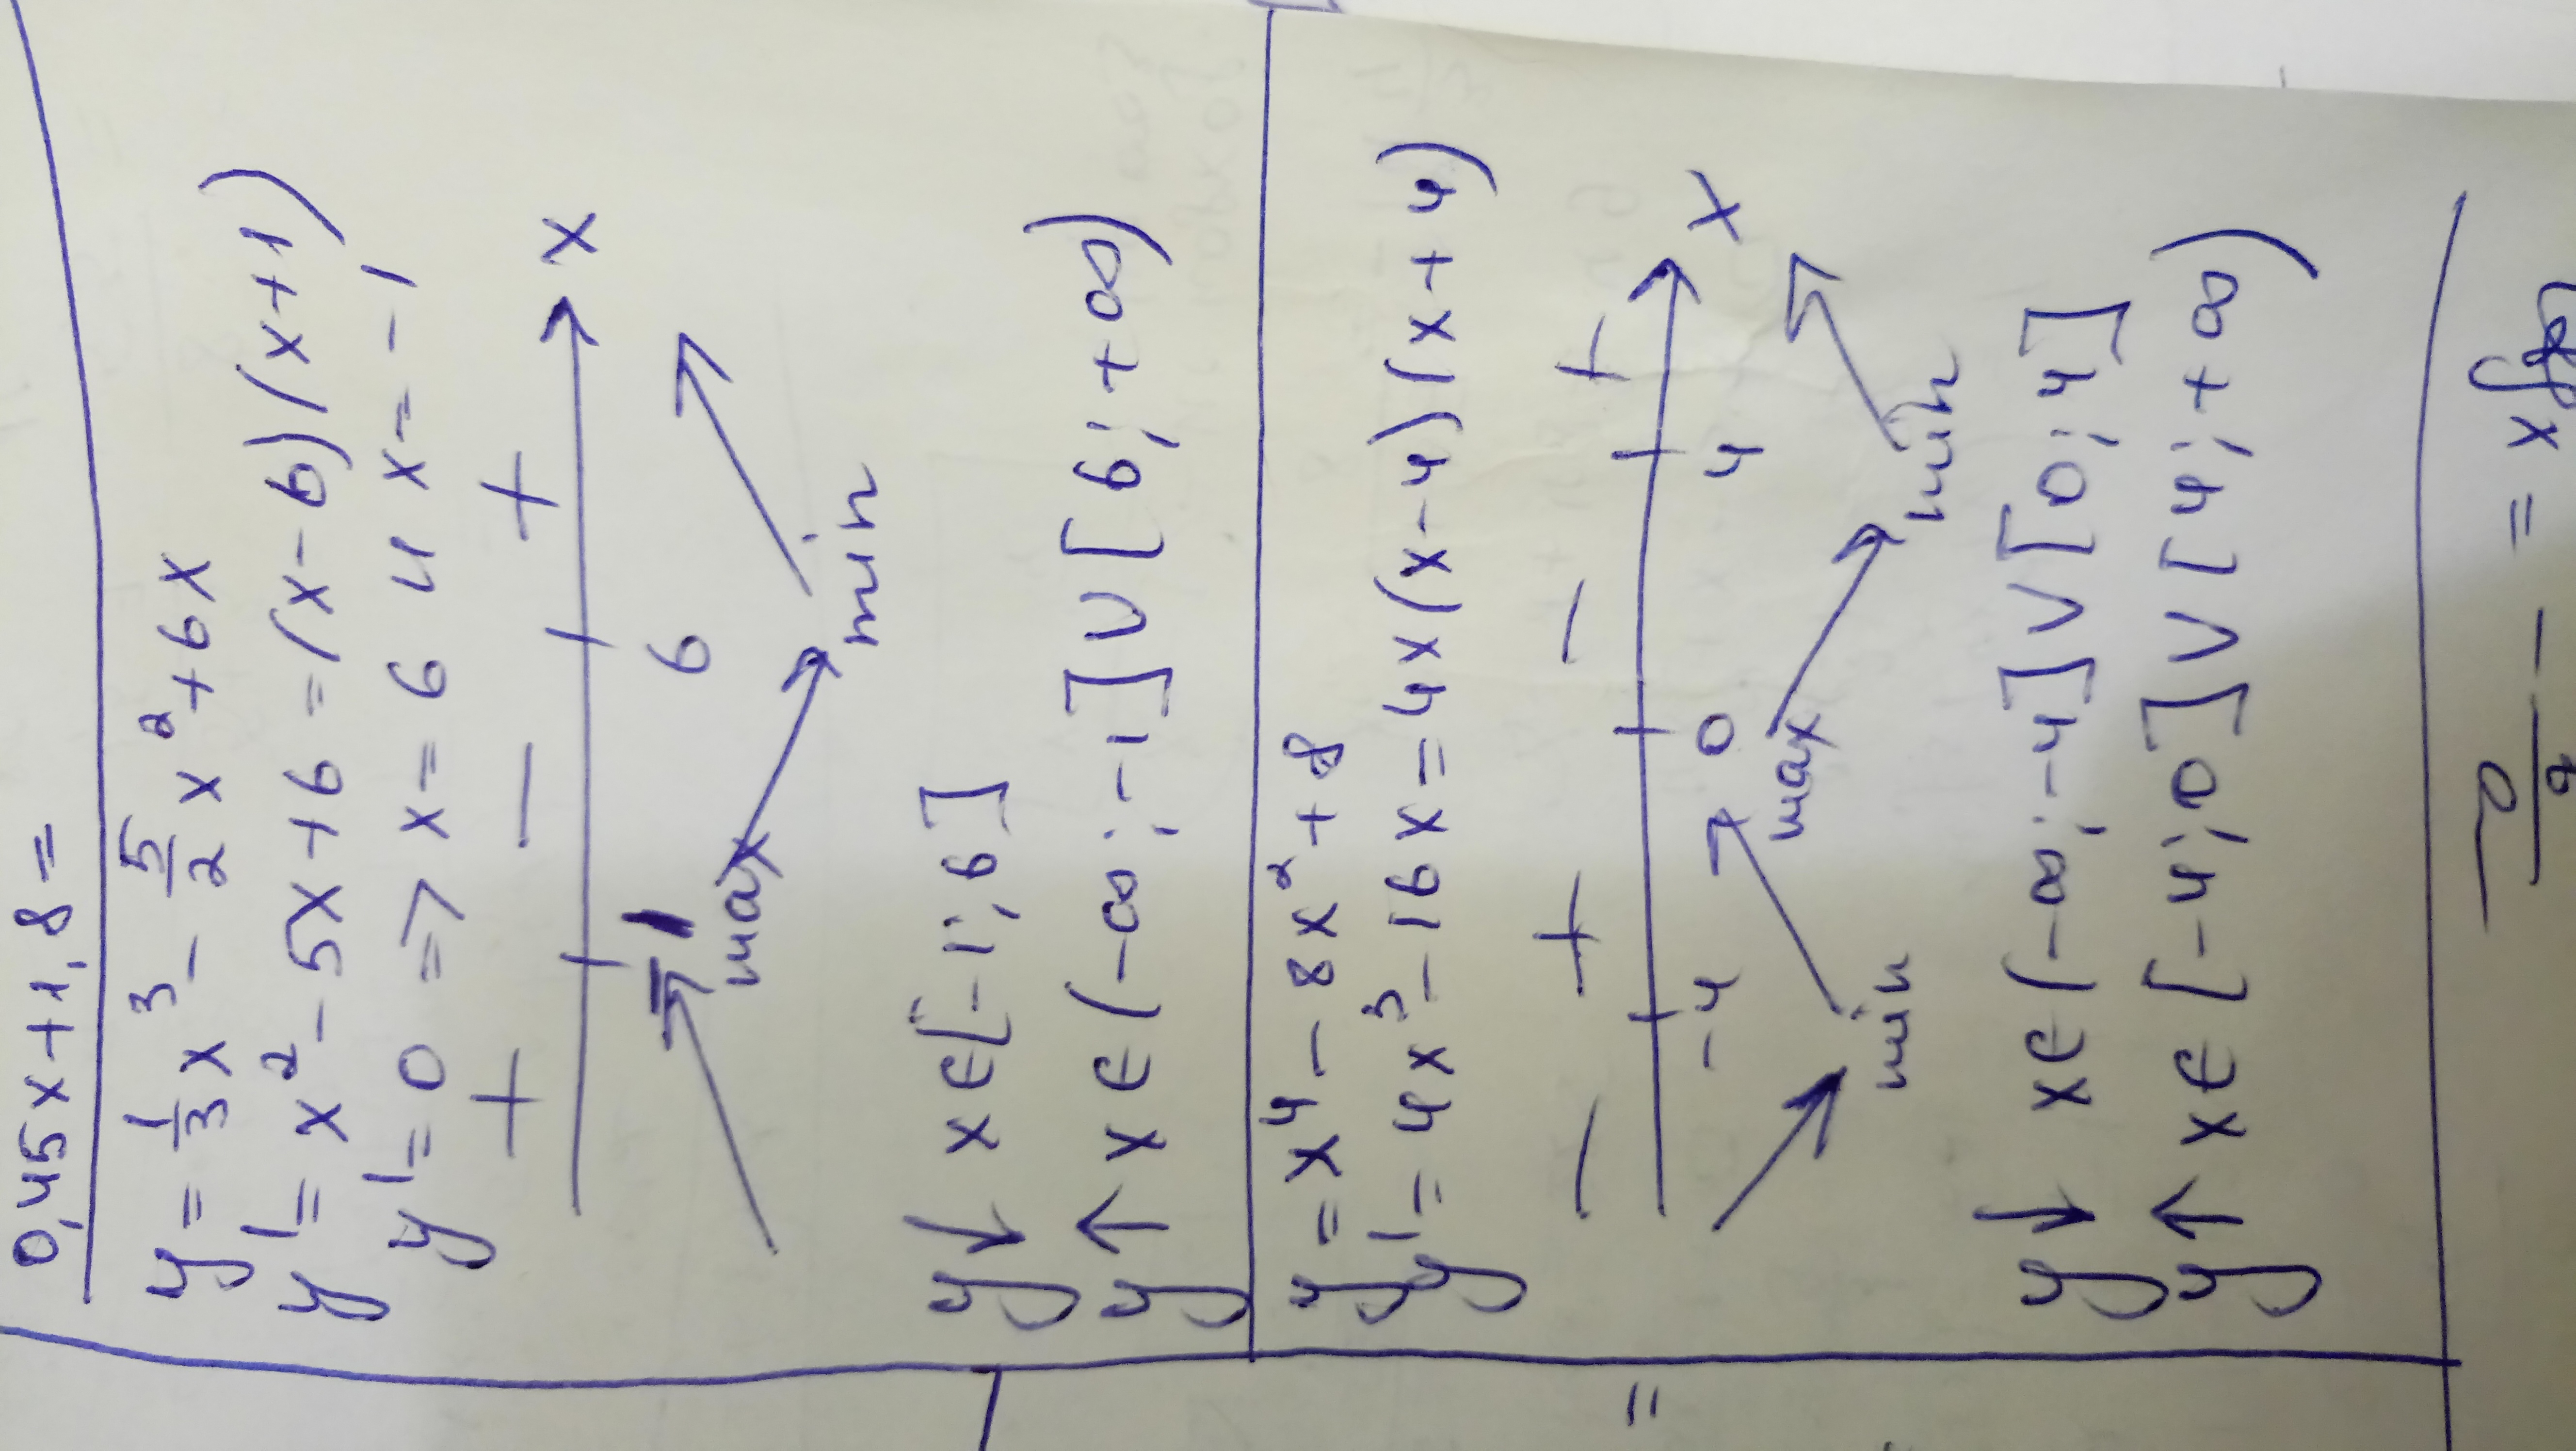 0,45x+1,8=
y = 1/3 x³ - 5/2 x² + 6x
y' = x² - 5x + 6 = (x-6)(x+1)
y' = 0 => x = 6 и x = -1
+ - + x
-1 6
max min
y↓ x∈[-1; 6]
y↑ x∈(-∞; -1]∪[6; +∞)
y = x⁴ - 8x² + 8
y' = 4x³ - 16x = 4x(x-4)(x+4)
- + - + x
-4 0 4
min max min
y↓ x∈(-∞; -4]∪[0; 4]
y↑ x∈[-4; 0]∪[4; +∞)
=